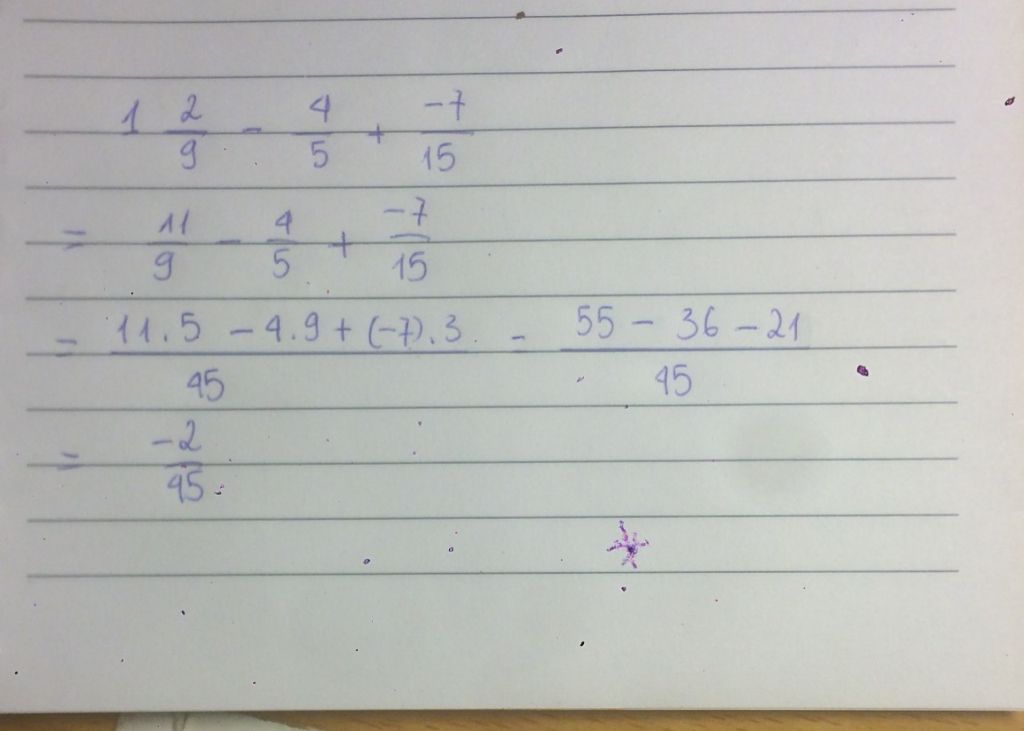 1 2/9 - 4/5 + -7/15
= 11/9 - 4/5 + -7/15
= 11.5 - 4.9 + (-7).3 / 45 = 55 - 36 - 21 / 45
= -2/45